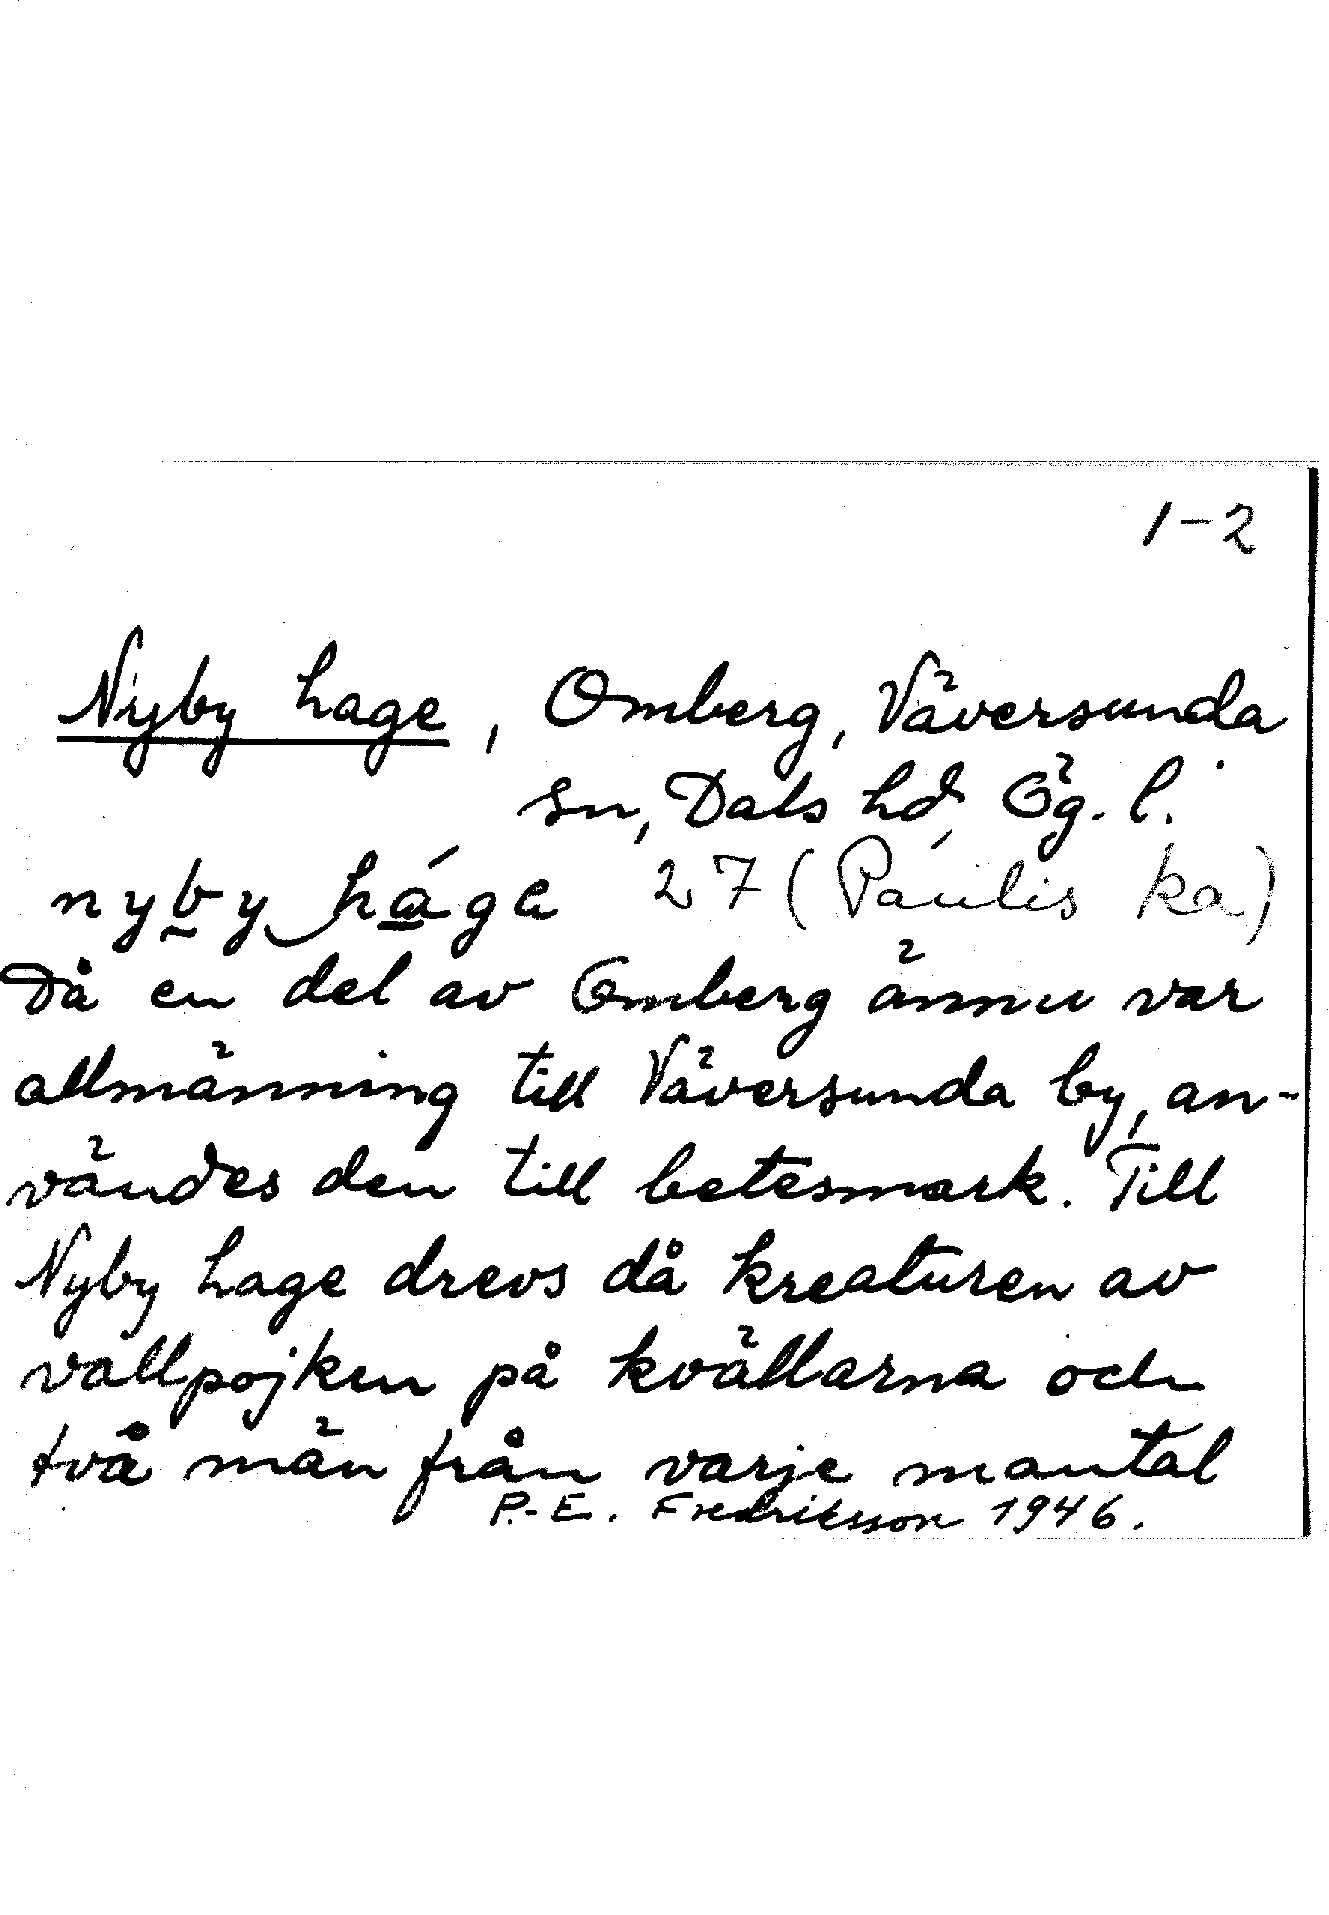 1-2
Nyby hage, Omberg, Väversunda
sn, Dals hd, Ög. l.
nyby háge 27 (Paulis ka)
Då en del av Omberg ännu var
allmänning till Väversunda by, an-
vändes den till betesmark. Till
Nyby hage drevs då kreaturen av
vallpojken på kvällarna och
två män från varje mantal
P.-E. Fredriksson 1946.